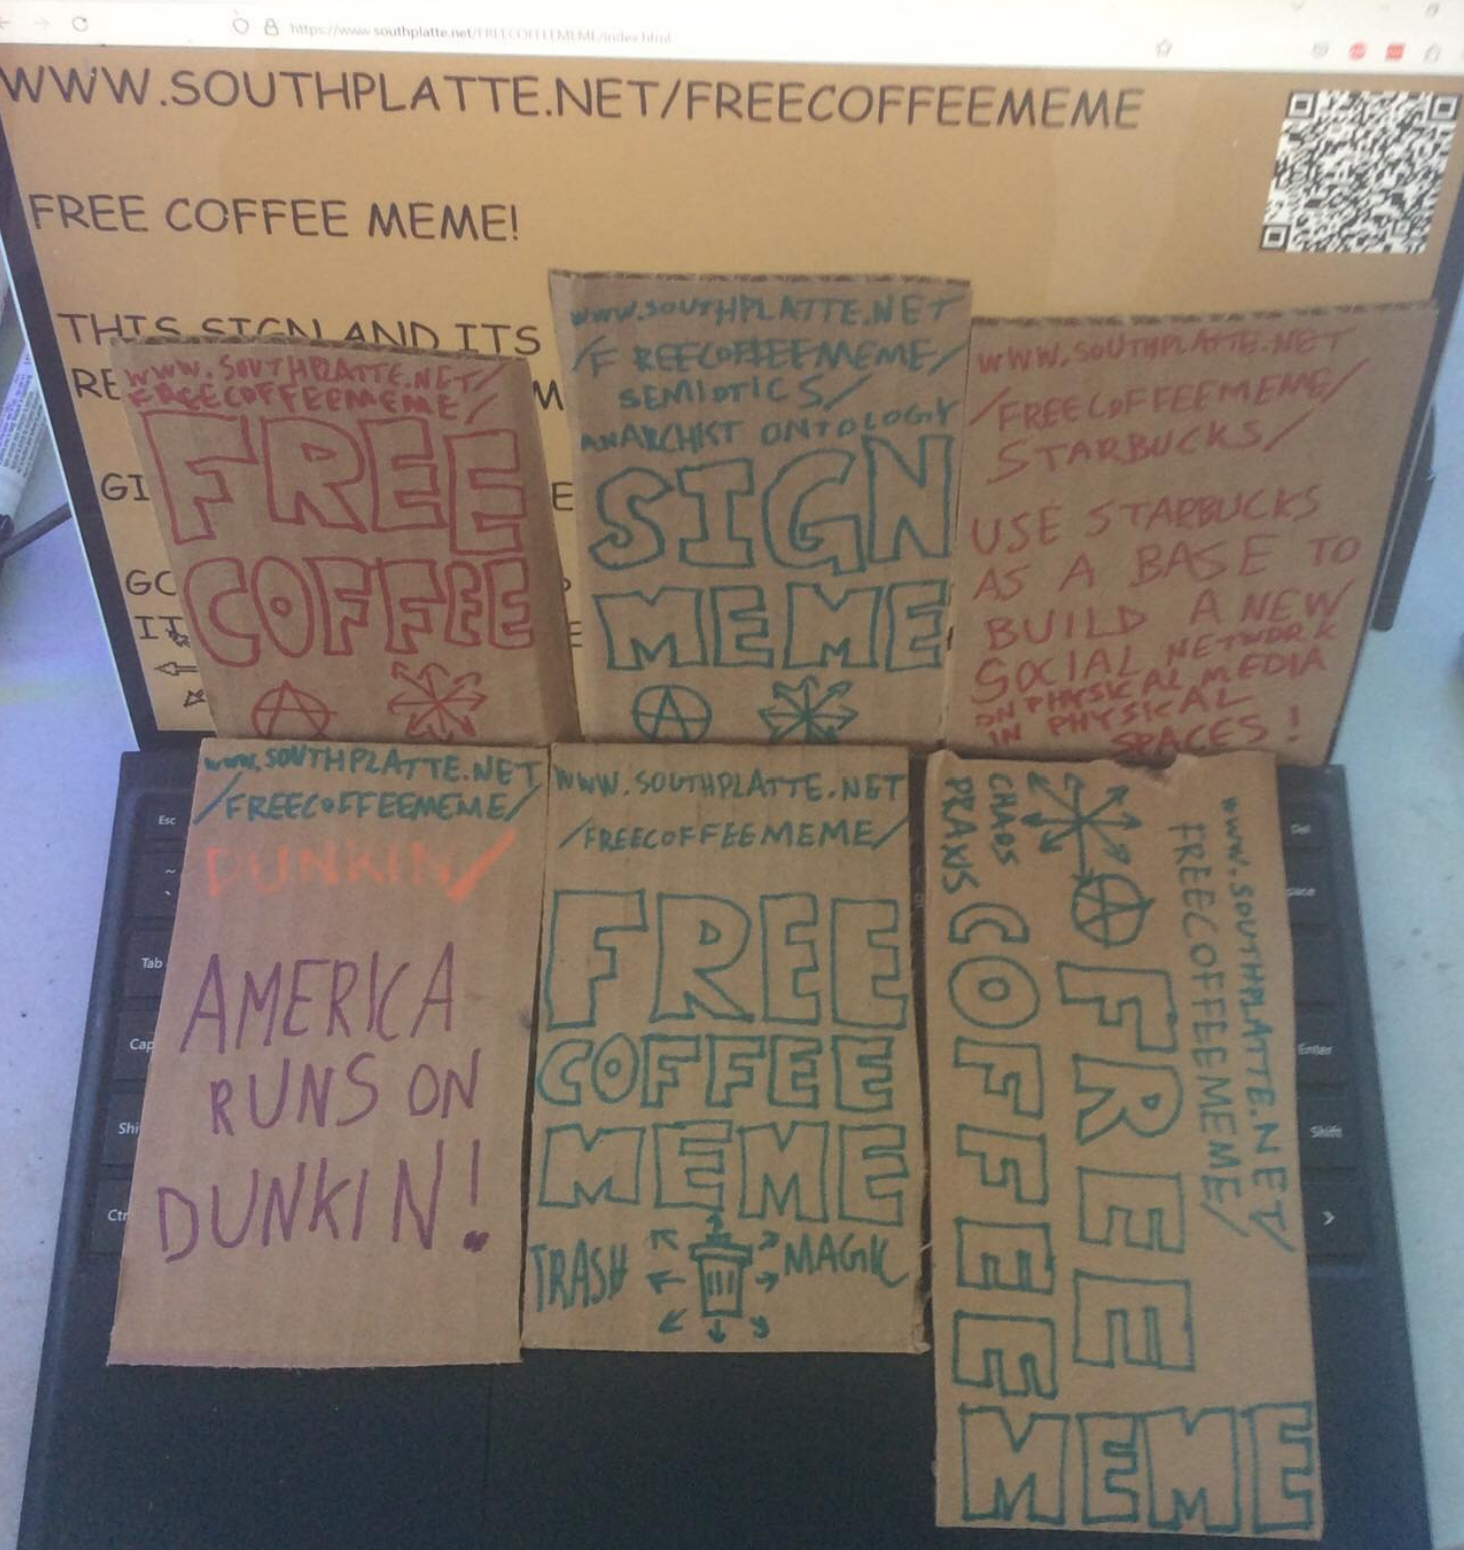 https://www.southplatte.net/FREECOFFEEMEME/index.html
WWW.SOUTHPLATTE.NET/FREECOFFEEMEME
FREE COFFEE MEME!
THIS SIGN AND ITS
RE
M
GI
E
GO
IT
E
WWW.SOUTHPLATTE.NET/
FREECOFFEEMEME/
FREE
COFFEE
WWW.SOUTHPLATTE.NET
/FREECOFFEEMEME/
SEMIOTICS/
ANARCHIST ONTOLOGY
SIGN
MEME
WWW.SOUTHPLATTE.NET
/FREECOFFEEMEME/
STARBUCKS/
USE STARBUCKS
AS A BASE TO
BUILD A NEW
SOCIAL NETWORK
ON PHYSICAL MEDIA
IN PHYSICAL
SPACES!
WWW.SOUTHPLATTE.NET
/FREECOFFEEMEME/
DUNKIN/
AMERICA
RUNS ON
DUNKIN!
WWW.SOUTHPLATTE.NET
/FREECOFFEEMEME/
FREE
COFFEE
MEME
TRASH MAGIC
WWW.SOUTHPLATTE.NET/
FREECOFFEEMEME/
FREE
COFFEE
MEME
CHAOS
PRAXIS
Esc
~
`
Tab
Cap
Shi
Ctr
Del
pace
Enter
Shift